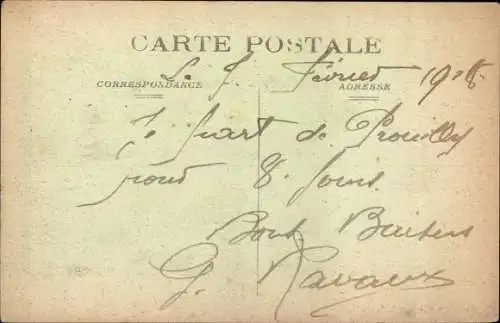 CARTE POSTALE
CORRESPONDANCE
ADRESSE
Le Février 191
Je part de Prouilly
pour 8 jours
Bons Baisers
G. Ravaux